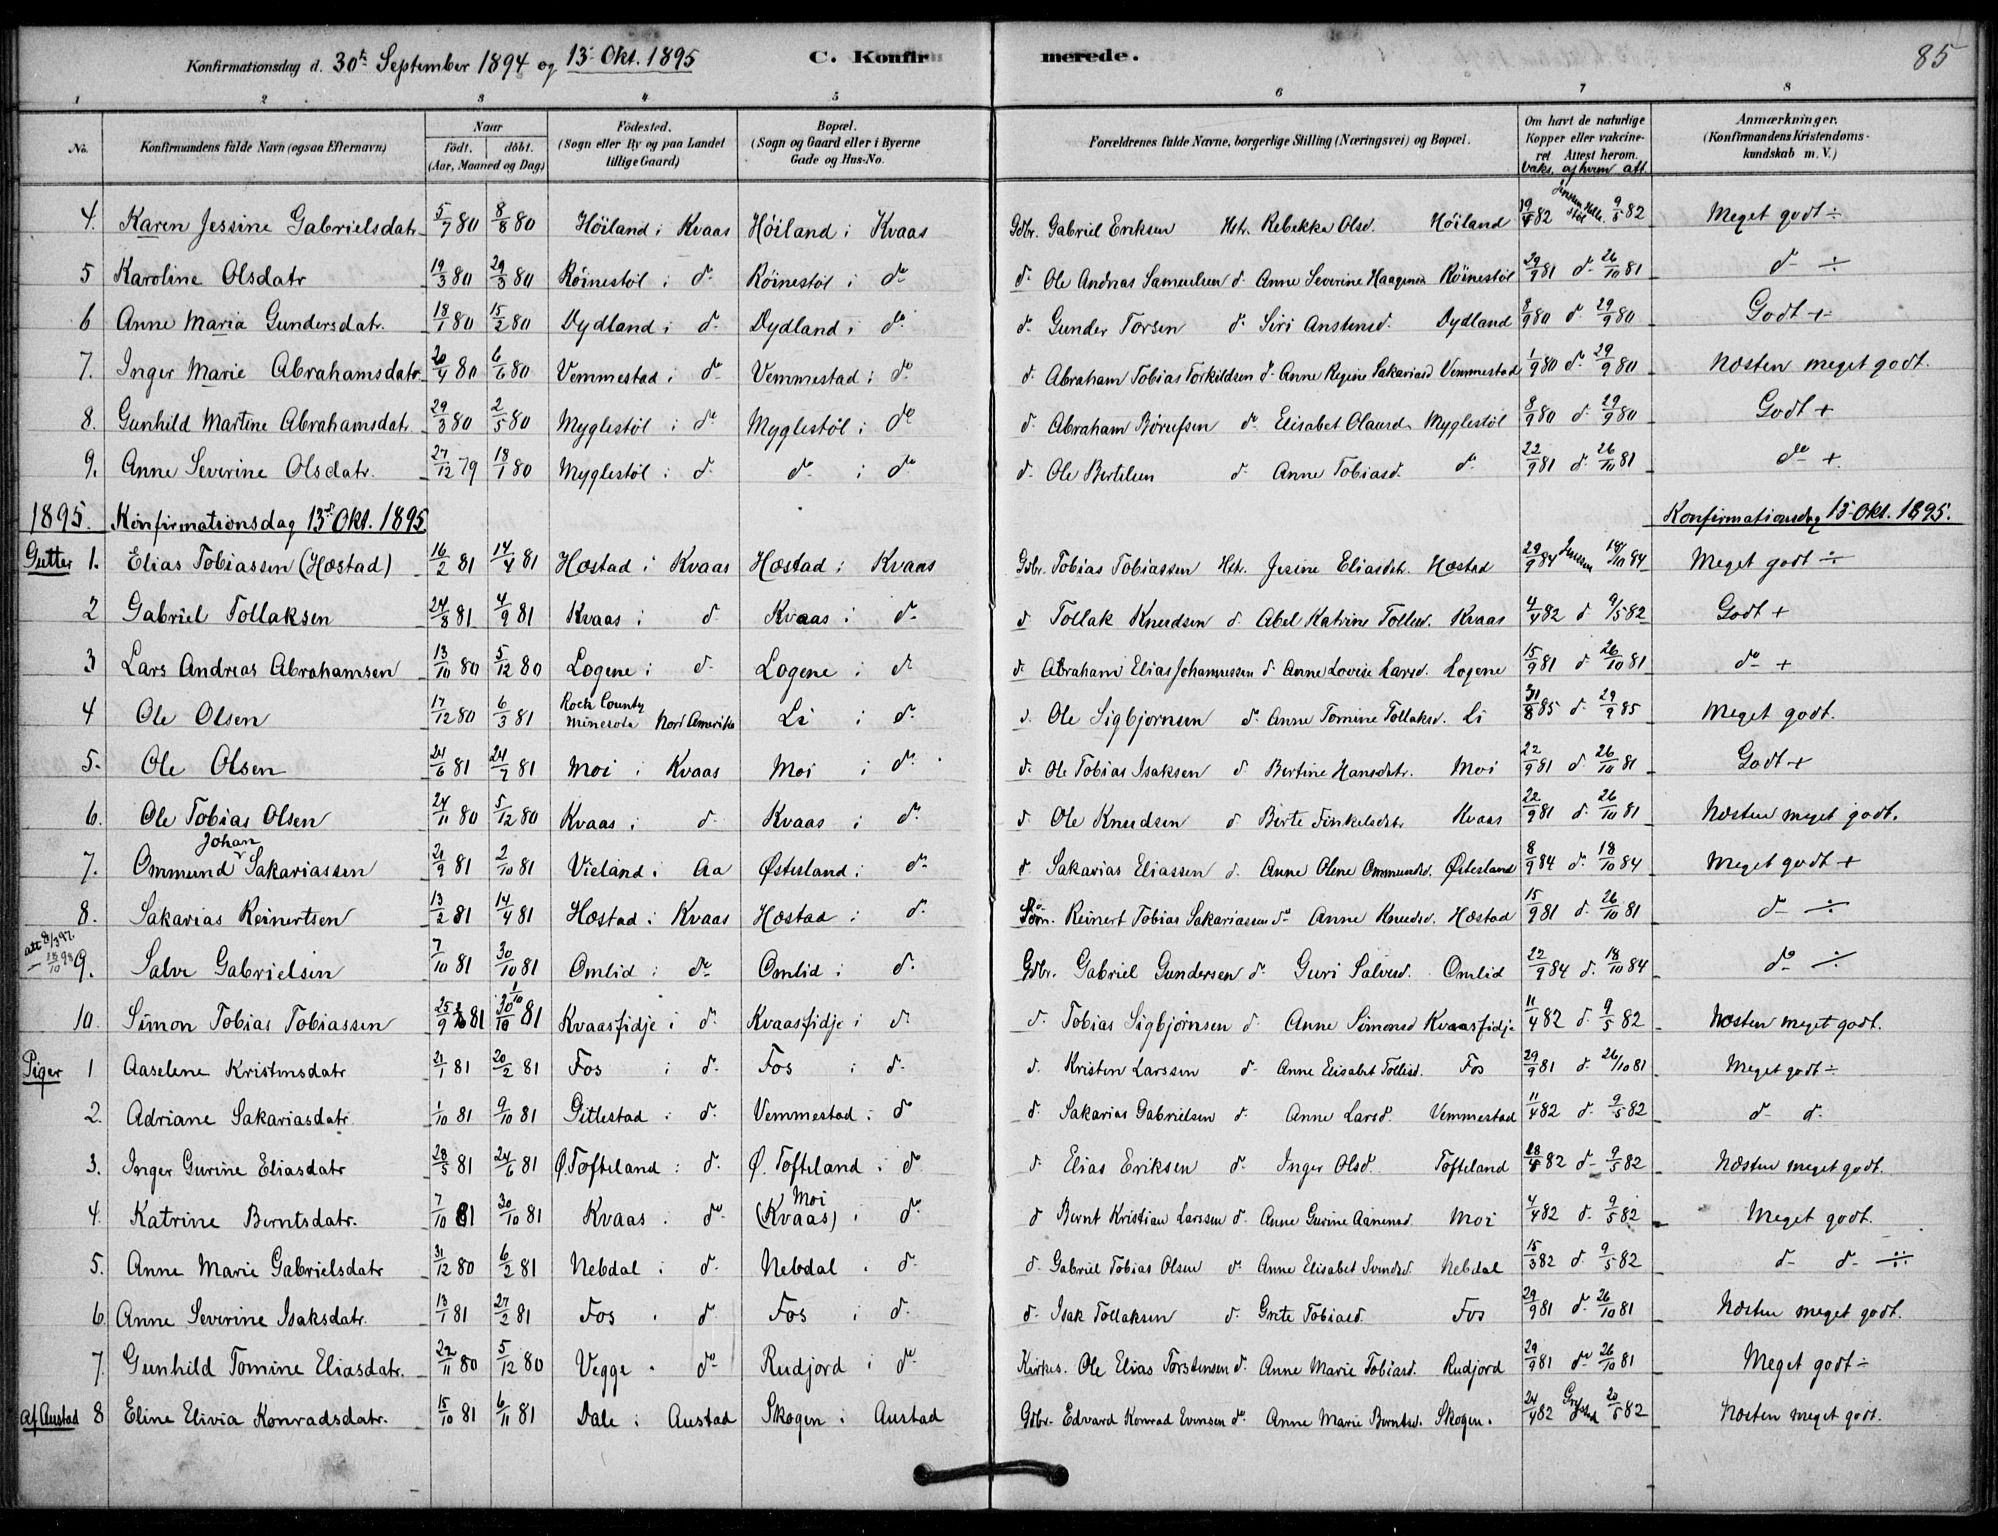 Konfirmationsdag d. 30te September 1894 og 13. Okt. 1895 C. Konfirmerede. 85
1 2 3 4 5 6 7 8
No. Konfirmandens fulde Navn (ogsaa Efternavn) Naar født. døbt. (Aar, Maaned og Dag) Fødested. (Sogn eller By og paa Landet tillige Gaard) Bopæl. (Sogn og Gaard eller i Byerne Gade og Hus-No. Forældrenes fulde Navne, borgerlige Stilling (Næringsvei) og Bopæl. Om havt de naturlige Kopper eller vakcineret. Attest herom. vaks. af hvem att. Anmærkninger. (Konfirmandens Kristendomskundskab m. V.)
4. Karen Jessine Gabrielsdatr 5/7 80 8/8 80 Höiland i Kvaas Höiland i Kvaas Gdbr. Gabriel Eriksen Hstr. Rebekka Olsd. Höiland 19/4 82 9/5 82 Meget godt ÷
5 Karoline Olsdatr 19/3 80 29/3 80 Röinestöl i do Röinestöl i do d. Ole Andreas Samuelsen d. Anne Severine Haagensd Röinestöl 29/9 81 d. 26/10 81 d. ÷
6 Anne Maria Gundersdatr. 18/1 80 15/2 80 Dydland i d. Dydland i do d. Gunder Torsen d. Siri Anstensd. Dydland 8/9 80 d. 29/9 80 Godt ÷
7. Inger Marie Abrahamsdatr 20/4 80 6/6 80 Vemmestad i do Vemmestad i do d. Abraham Tobias Torkildsen d. Anne Regine Sakariasd Vemmestad 1/9 80 d. 29/9 80 Næsten meget godt.
8. Gunhild Martine Abrahamsdatr 29/3 80 2/5 80 Myglestöl i do Myglestöl i do d. Abraham Börufsen do Elisabet Olausd. Myglestöl 8/9 80 d. 29/9 80 Godt +
9. Anne Severine Olsdatr. 27/12 79 18/1 80 Myglestöl i d. do i do d. Ole Bertelsen d. Anne Tobiasd. do 22/9 81 d. 26/10 81 do +
1895. Konfirmationsdag 13de Okt. 1895. Konfirmationsdag 13. Okt. 1895.
Gutter 1. Elias Tobiassen (Hæstad) 16/2 81 14/4 81 Hæstad i Kvaas Hæstad i Kvaas Gdbr. Tobias Tobiassen Hstr. Jesine Eliasdtr. Hæstad 29/9 84 Jenssen 18/10 84 Meget godt ÷
2 Gabriel Tollaksen 24/8 81 4/9 81 Kvaas i d. Kvaas i d. d Tollak Knudsen d. Abel Katrine Tollesd. Kvaas 4/4 82 d. 9/5 82 Godt +
3 Lars Andreas Abrahamsen 13/10 80 5/12 80 Logene i d. Logene i d. d. Abraham Elias Johannessen d. Anne Lovise Larsd. Logene 15/9 81 d 26/10 81 do +
4 Ole Olsen 17/12 80 6/3 81 Rock County Minesota Nord Amerika Li i d. d. Ole Sigbjornsen d. Anne Tomine Tollaksd. Li 31/8 85 d. 29/9 85 Meget godt.
5. Ole Olsen 24/6 81 24/7 81 Moi i Kvaas Moi i do d. Ole Tobias Isaksen d Bertine Hansdatr. Moi 22/9 81 d. 26/10 81 Godt +
6. Ole Tobias Olsen 24/11 80 5/12 80 Kvaas i d. Kvaas i d. d Ole Knudsen d Birte Finkelsdtr. Kvaas 22/9 81 d. 26/10 81 Næsten meget godt.
7. Ommund Johan Sakariassen 21/9 81 2/10 81 Vieland i Aa Østesland i do d Sakarias Eliassen d. Anne Olene Ommundsd. Østesland 8/9 84 d. 18/10 84 Meget godt +
8. Sakarias Reinertsen 13/2 81 14/4 81 Hæstad i Kvaas Hæstad i d. Reinert Tobias Sakariassen do Anne Knudsd. Hæstad 15/9 81 d. 26/10 81 d. ÷
att 9. Salve Gabrielsen 7/10 81 30/10 81 Omlid i do Omlid i d. Gdbr. Gabriel Gundersen d. Guri Salvesd. Omlid 22/9 84 d. 18/10 84 do ÷
10. Simon Tobias Tobiassen 25/9 81 30/10 81 Kvaasfidje i d. Kvaasfidje i d. d. Tobias Sigbjørnsen d. Anne Simonsd Kvaasfidje 11/4 82 d. 9/5 82 Næsten meget godt.
Piger 1 Aaselene Kristensdatr 21/1 81 20/2 81 Fos i d. Fos i d. d. Kristen Larssen d. Anne Elisabet Tollesd. Fos 29/9 81 d. 26/10 81 Meget godt ÷
2. Adriane Sakariasdatr. 1/10 81 9/10 81 Gitlestad i d. Vemmestad i d. d. Sakarias Gabrielsen d. Anne Larsd. Vemmestad 11/4 82 d. 9/5 82 d. d.
3. Inger Gurine Eliasdatr 28/5 81 24/6 81 Ø. Tofteland i d. Ø. Tofteland i d. d. Elias Eriksen d. Inger Olsd. Tofteland 18/4 82 d. 9/5 82 Næsten meget godt.
4. Katrine Berntsdatr. 7/10 81 30/10 81 Kvaas i do Moi (Kvaas) i do d Bernt Kristian Larssen d. Anne Gurine Aanensd. Moi 4/4 82 d. 9/5 82 Meget godt.
5. Anne Marie Gabrielsdatr 31/12 80 6/2 81 Nebdal i d. Nebdal i d. d. Gabriel Tobias Olsen d. Anne Elisabet Svendsd. Nebdal 15/3 82 d. 9/5 82 d. d. ÷
6 Anne Severine Isaksdatr. 13/1 81 27/2 81 Fos i d Fos i d. d. Isak Tollaksen d. Grete Tobiasd. Fos 29/9 81 d. 26/10 81 Næsten meget godt.
7. Gunhild Tomine Eliasdatr. 22/11 80 5/12 80 Vegge i do Rudjord i do Kirkes. Ole Elias Torstensen d. Anne Marie Tobiasd. Rudjord 29/9 81 do 26/10 81 Meget godt ÷
af Austad 8 Eline Elivia Konradsdatr. 15/10 81 6/11 81 Dale i Austad Skogen i Austad Gdbr. Edvard Konrad Evensen do Anne Marie Berntsd. Skogen. 24/4 82 20/5 82 Næsten meget godt.